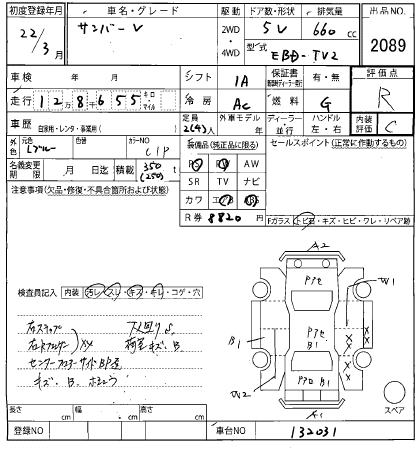 初度登録年月 車名・グレード 駆動 ドア数・形状 排気量 出品NO.
22/3月 サンバーV 2WD・4WD 5V 660cc 2089
型式 EBD-TV2
車検 年 月 シフト IA 保証書 有・無 評価点
走行 12万8千655 キロ マイル 冷房 AC 燃料 G R
車歴 自家用・レンタ・事業用( ) 定員 2(4)人 外車モデル ディーラー・並行 ハンドル 左・右 内装評価 C
外色 元色 ブルー 色替 カラーNO C1P 装備品(純正品に限る) セールスポイント(正常に作動するもの)
名義変更期限 月 日迄 積載 350(250)kg PS PW AW
SR TV ナビ
注意事項(欠品・修復・不具合箇所および状態) カワ エアB
R券 8820
Fガラス(トビ石・キズ・ヒビ・ワレ・リペア跡)
検査員記入 内装(汚レ・スレ・キズ・キレ・コゲ・穴)
A2
Pアセ
W1
右ステップ 下廻りS
右リヤフェンダー XX 荷室キズ、B
Pアセ
B1 B1
センターフロアーサイドBP
キズ、B
W2
A1
スペア
長さ cm 幅 cm 高さ cm
登録NO 車台NO 132031